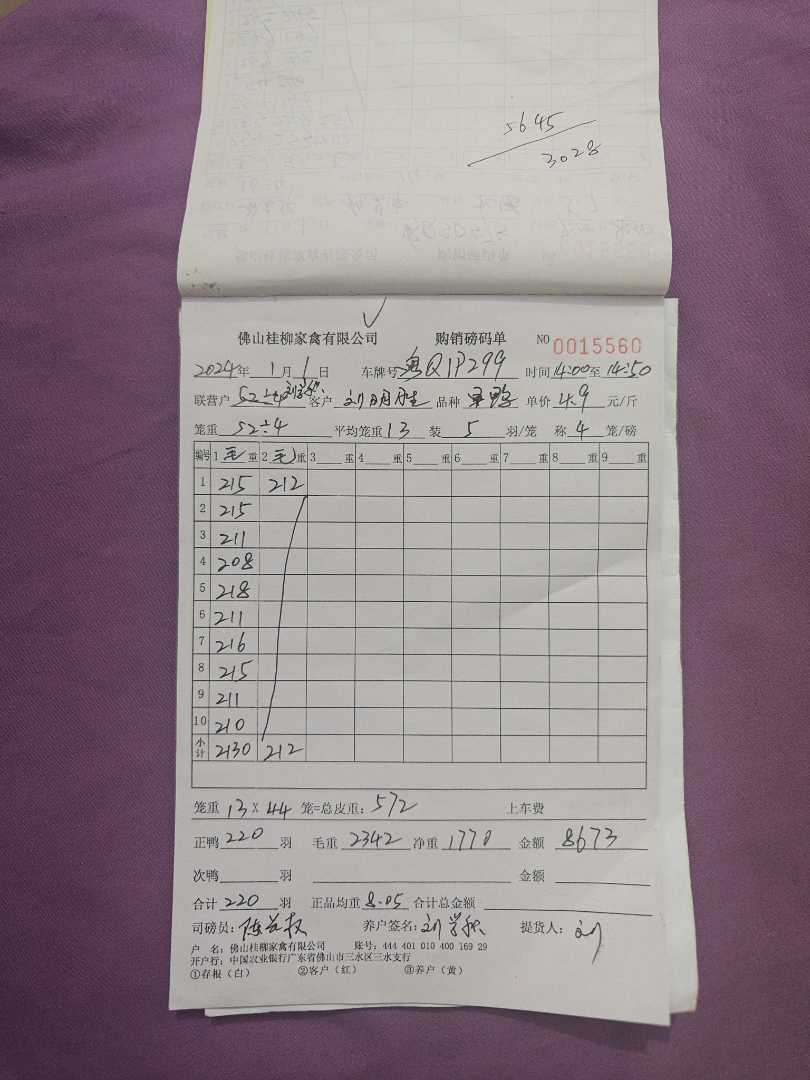 5645
3028
佛山桂柳家禽有限公司 购销磅码单 NO 0015560
2024年 1月 1日 车牌号 粤Q1P299 时间 14:00至 14:50
联营户 52÷4 客户 刘 品种 单价 4.9 元/斤
笼重 52÷4 平均笼重 13 装 5 羽/笼 称 4 笼/磅
编号 1 毛 重 2 毛 重 3 重 4 重 5 重 6 重 7 重 8 重 9 重
1 215 212
2 215
3 211
4 208
5 218
6 211
7 216
8 215
9 211
10 210
小计 2130 212
笼重 13 X 44 笼=总皮重: 572 上车费
正鸭 220 羽 毛重 2342 净重 1770 金额 8673
次鸭 羽 金额
合计 220 羽 正品均重 8.05 合计总金额
司磅员: 陈 养户签名: 刘学 提货人: 刘
户 名: 佛山桂柳家禽有限公司 账号: 444 401 010 400 169 29
开户行: 中国农业银行广东省佛山市三水区三水支行
①存根（白） ②客户（红） ③养户（黄）